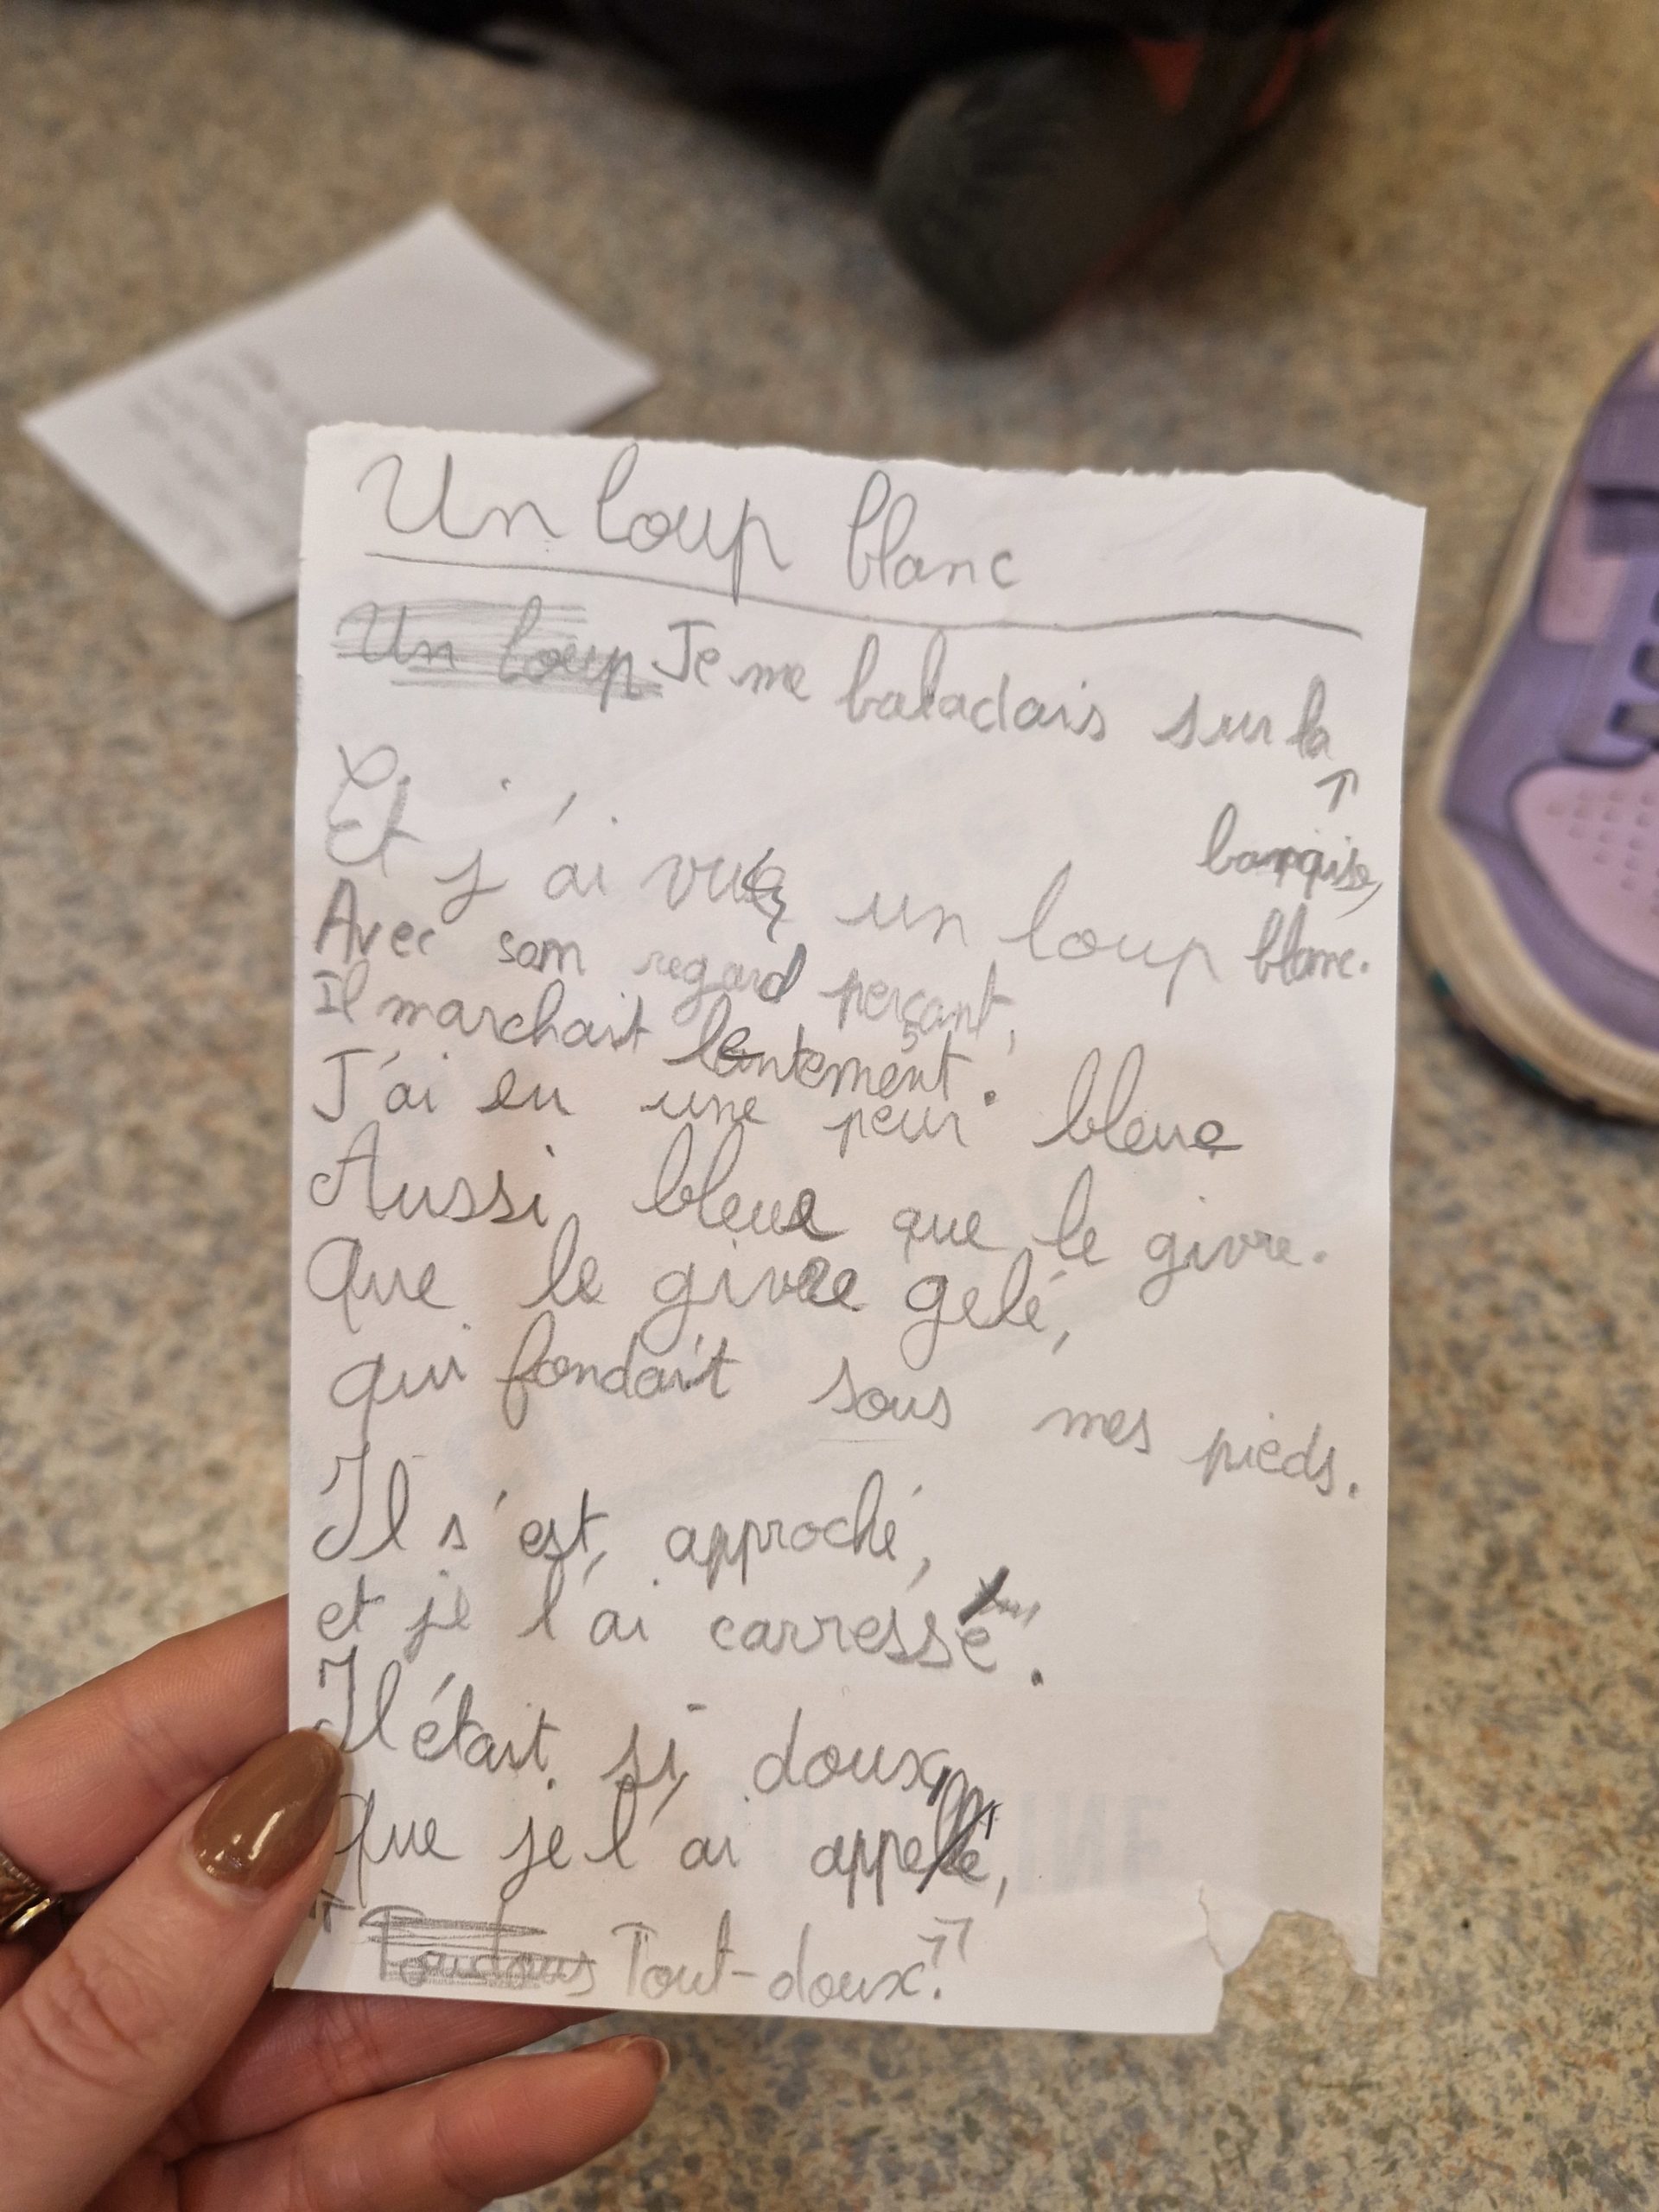 Un loup blanc
Un loup Je me baladais sur la
banquise,
Et j'ai vu un loup blanc.
Avec son regard perçant,
Il marchait lentement.
J'ai eu une peur bleue
Aussi bleue que le givre.
Que le givre gelé,
qui fondait sous mes pieds.
Il s'est approché,
et je l'ai carressé.
Il était si doux,
Que je l'ai appelé,
" Toudous Tout-doux."